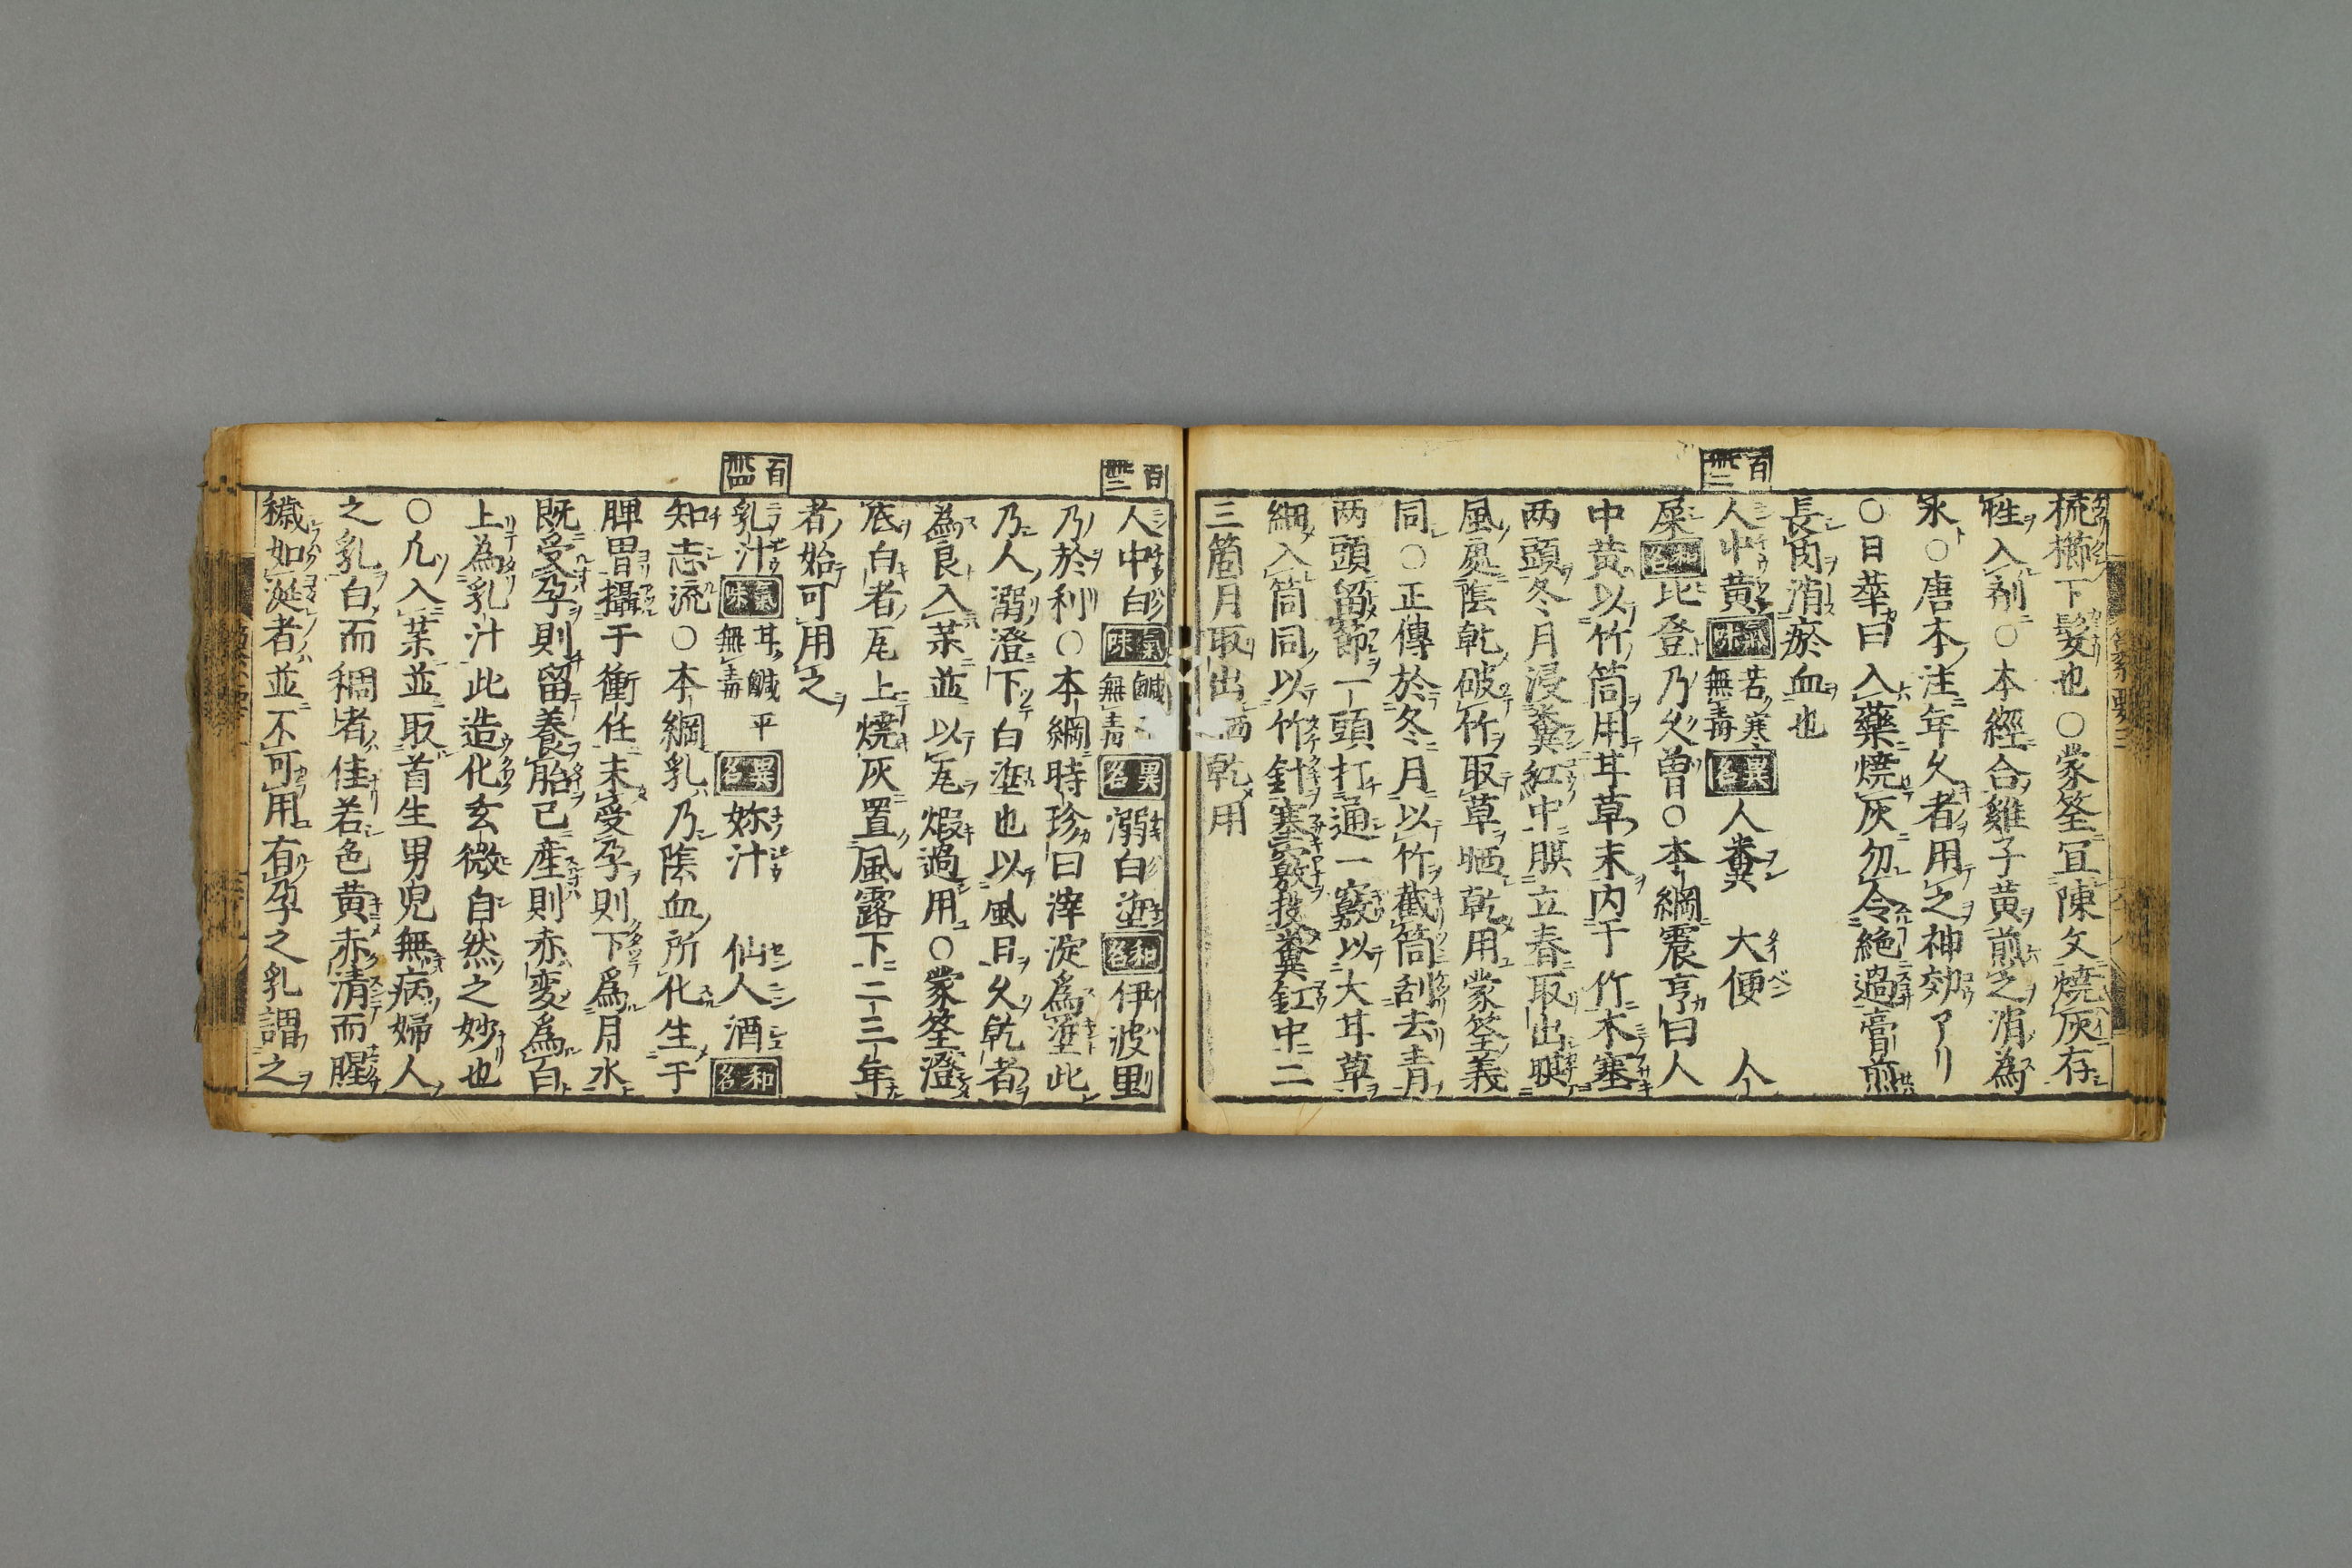 梳櫛下髮也○蒙筌冝陳久燒灰存
性入剤○本經合雞子黄煎之消為
水○唐本注年久者用之神効アリ
○日華曰入藥燒灰勿令絶過膏煎
長肉消瘀血也
百
人中黄 氣味 苦寒無毒 異名 人糞 大便 人
屎 和名 比登乃久曽○本綱震亨曰人
中黄以竹筒用甘草末内于竹木塞
两頭冬月浸糞缸中 立春取出
風處陰乾破竹取草晒乾用蒙筌義
同○正傳於冬月以竹截筒刮去青
两頭留節一頭打通一竅以大甘草
細入筒同以竹針塞竅投糞缸中二
三箇月取出晒乾用
百
人中白 氣味 鹹 無毒 異名 溺白垽 和名 伊波里
乃於利○本綱時珍曰滓淀為垽此
乃人溺澄下白垽也以風日久乾者
為良入薬並以瓦煅過用○蒙筌澄
底白者瓦上燒灰置風露下二三年
者始可用之
百
乳汁 氣味 甘鹹平無毒 異名 妳汁 仙人酒 和名
知志流○本綱乳乃陰血所化生于
脾胃攝于衝任未受孕則下為月水
既受孕則留養胎已産則赤変為白
上為乳汁此造化玄微自然之妙也
○凡入薬並取首生男兒無病婦人
之乳白而稠者佳若色黄赤清而腥
穢如涎者並不可用有孕之乳謂之